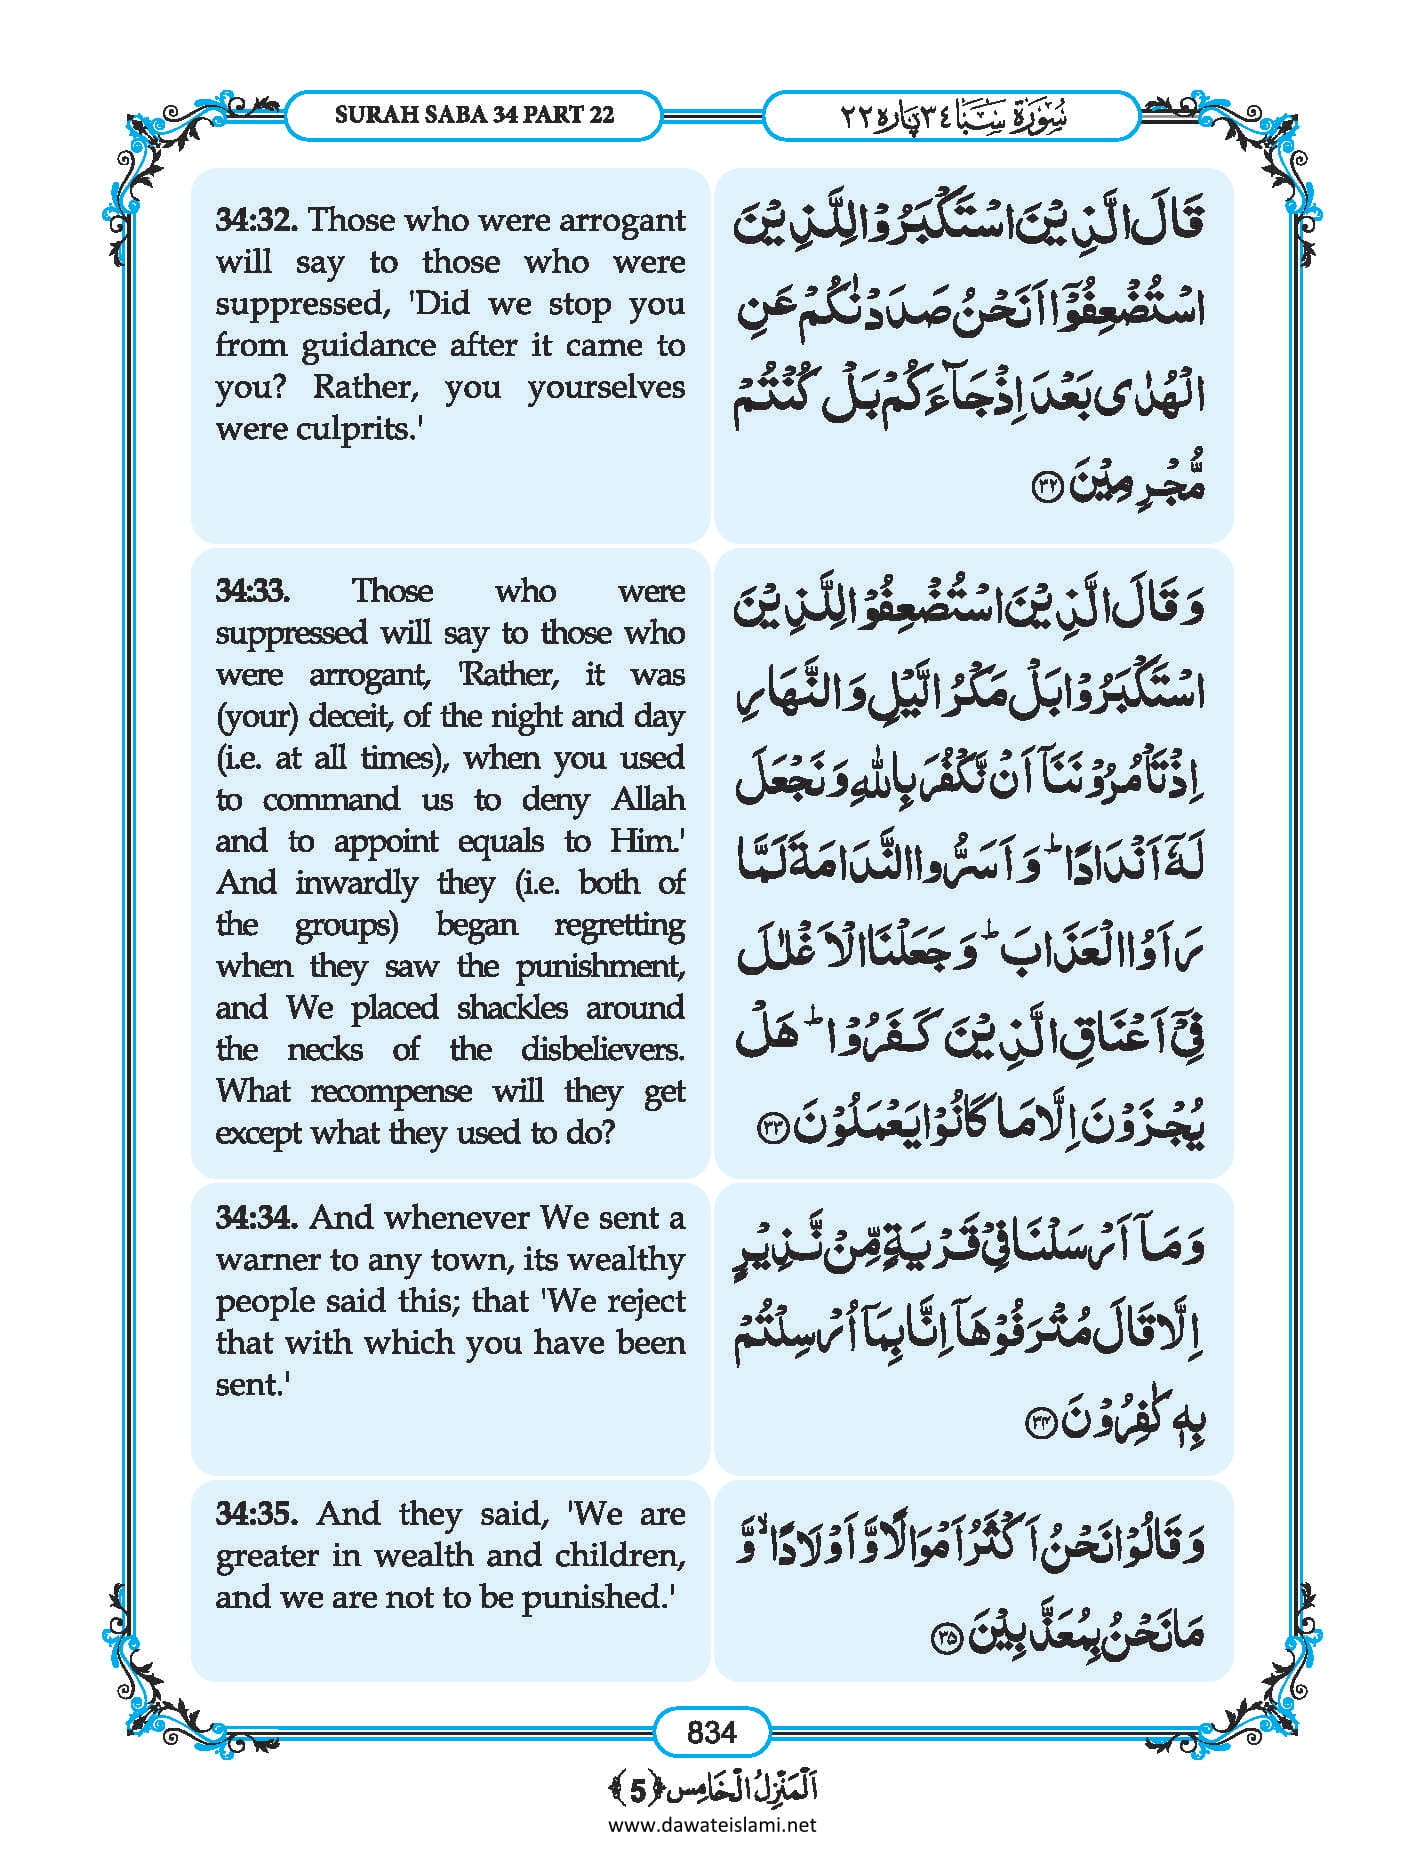 SURAH SABA 34 PART 22
سُوْرَۃ سَبَا ٣٤ پارہ ٢٢
34:32. Those who were arrogant
will say to those who were
suppressed, 'Did we stop you
from guidance after it came to
you? Rather, you yourselves
were culprits.'
قَالَ الَّذِیْنَ اسْتَكْبَرُوْا لِلَّذِیْنَ
اسْتُضْعِفُوْۤا اَنَحْنُ صَدَدْنٰكُمْ عَنِ
الْهُدٰى بَعْدَ اِذْ جَآءَكُمْ بَلْ كُنْتُمْ
مُّجْرِمِیْنَ ﴿۳۲﴾
34:33. Those who were
suppressed will say to those who
were arrogant, 'Rather, it was
(your) deceit, of the night and day
(i.e. at all times), when you used
to command us to deny Allah
and to appoint equals to Him.'
And inwardly they (i.e. both of
the groups) began regretting
when they saw the punishment,
and We placed shackles around
the necks of the disbelievers.
What recompense will they get
except what they used to do?
وَ قَالَ الَّذِیْنَ اسْتُضْعِفُوْا لِلَّذِیْنَ
اسْتَكْبَرُوْا بَلْ مَكْرُ الَّیْلِ وَ النَّهَارِ
اِذْ تَاْمُرُوْنَنَاۤ اَنْ نَّكْفُرَ بِاللّٰهِ وَ نَجْعَلَ
لَهٗۤ اَنْدَادًا ؕ وَ اَسَرُّوا النَّدَامَةَ لَمَّا
رَاَوُا الْعَذَابَ ؕ وَ جَعَلْنَا الْاَغْلٰلَ
فِیْۤ اَعْنَاقِ الَّذِیْنَ كَفَرُوْا ؕ هَلْ
یُجْزَوْنَ اِلَّا مَا كَانُوْا یَعْمَلُوْنَ ﴿۳۳﴾
34:34. And whenever We sent a
warner to any town, its wealthy
people said this; that 'We reject
that with which you have been
sent.'
وَ مَاۤ اَرْسَلْنَا فِیْ قَرْیَةٍ مِّنْ نَّذِیْرٍ
اِلَّا قَالَ مُتْرَفُوْهَاۤ اِنَّا بِمَاۤ اُرْسِلْتُمْ
بِهٖ كٰفِرُوْنَ ﴿۳۴﴾
34:35. And they said, 'We are
greater in wealth and children,
and we are not to be punished.'
وَ قَالُوْا نَحْنُ اَكْثَرُ اَمْوَالًا وَّ اَوْلَادًا ۙ وَّ
مَا نَحْنُ بِمُعَذَّبِیْنَ ﴿۳۵﴾
834
اَلْمَنْزِلُ الْخَامِس ﴿5﴾
www.dawateislami.net